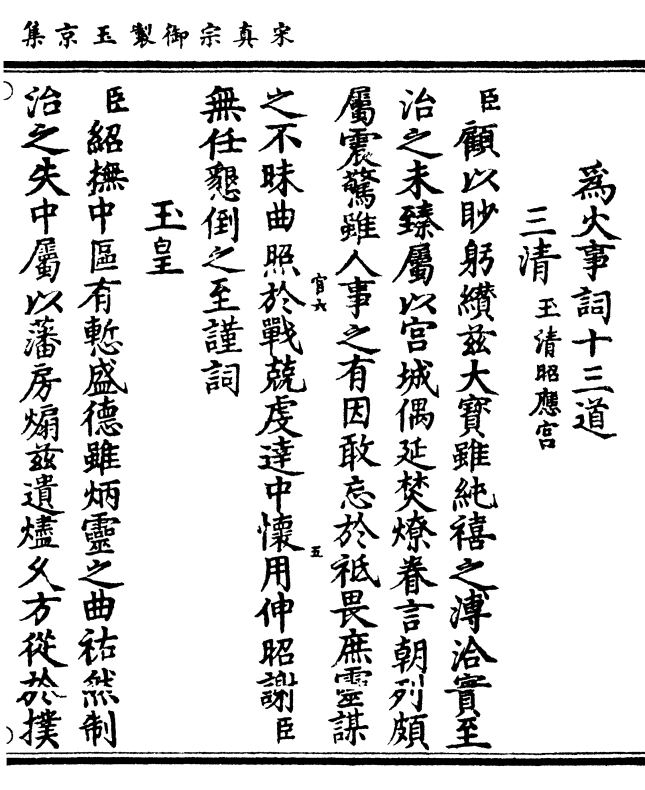 宋真宗御製玉京集
爲火事詞十三道
三清 玉清昭應宮
臣顧以眇躬纘兹大寶雖純禧之溥洽實至
治之未臻屬以宫城偶延焚燎眷言朝列頗
屬震驚雖人事之有因敢忘於祗畏庶靈謀
官六 五
之不昧曲照於戰兢虔達中懷用伸昭謝臣
無任懇倒之至謹詞
玉皇
臣紹撫中區有慙盛德雖炳靈之曲祐然制
治之失中屬以藩房煽兹遺燼乆方從於撲